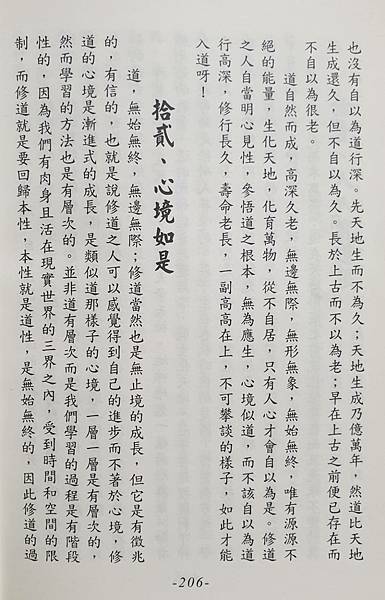 也沒有自以為道行深。先天地生而不為久;天地生成乃億萬年,然道比天地
生成還久,但不自以為久。長於上古而不以為老;早在上古之前便已存在而
不自以為很老。
道自然而成,高深久老,無邊無際,無形無象,無始無終,唯有源源不
絕的能量,生化天地,化育萬物,從不自居,只有人心才會自以為是。修道
之人自當明心見性,參悟道之根本,無為應生,心境似道,而不該自以為道
行高深,修行長久,壽命老長,一副高高在上,不可攀談的樣子,如此才能
入道呀!
拾貳、心境如是
道,無始無終,無邊無際;修道當然也是無止境的成長,但它是有徵兆
的,有信的,也就是說修道之人可以感覺得到自己的進步而不著於心境,修
道的心境是漸進式的成長,是類似道那樣子的心境,一層一層是有層次的,
然而學習的方法也是有層次的。並非道有層次而是我們學習的過程是有階段
性的,因為我們有肉身且活在現實世界的三界之內,受到時間和空間的限
制,而修道就是要回歸本性,本性就是道性,是無始無終的,因此修道的過
-206-